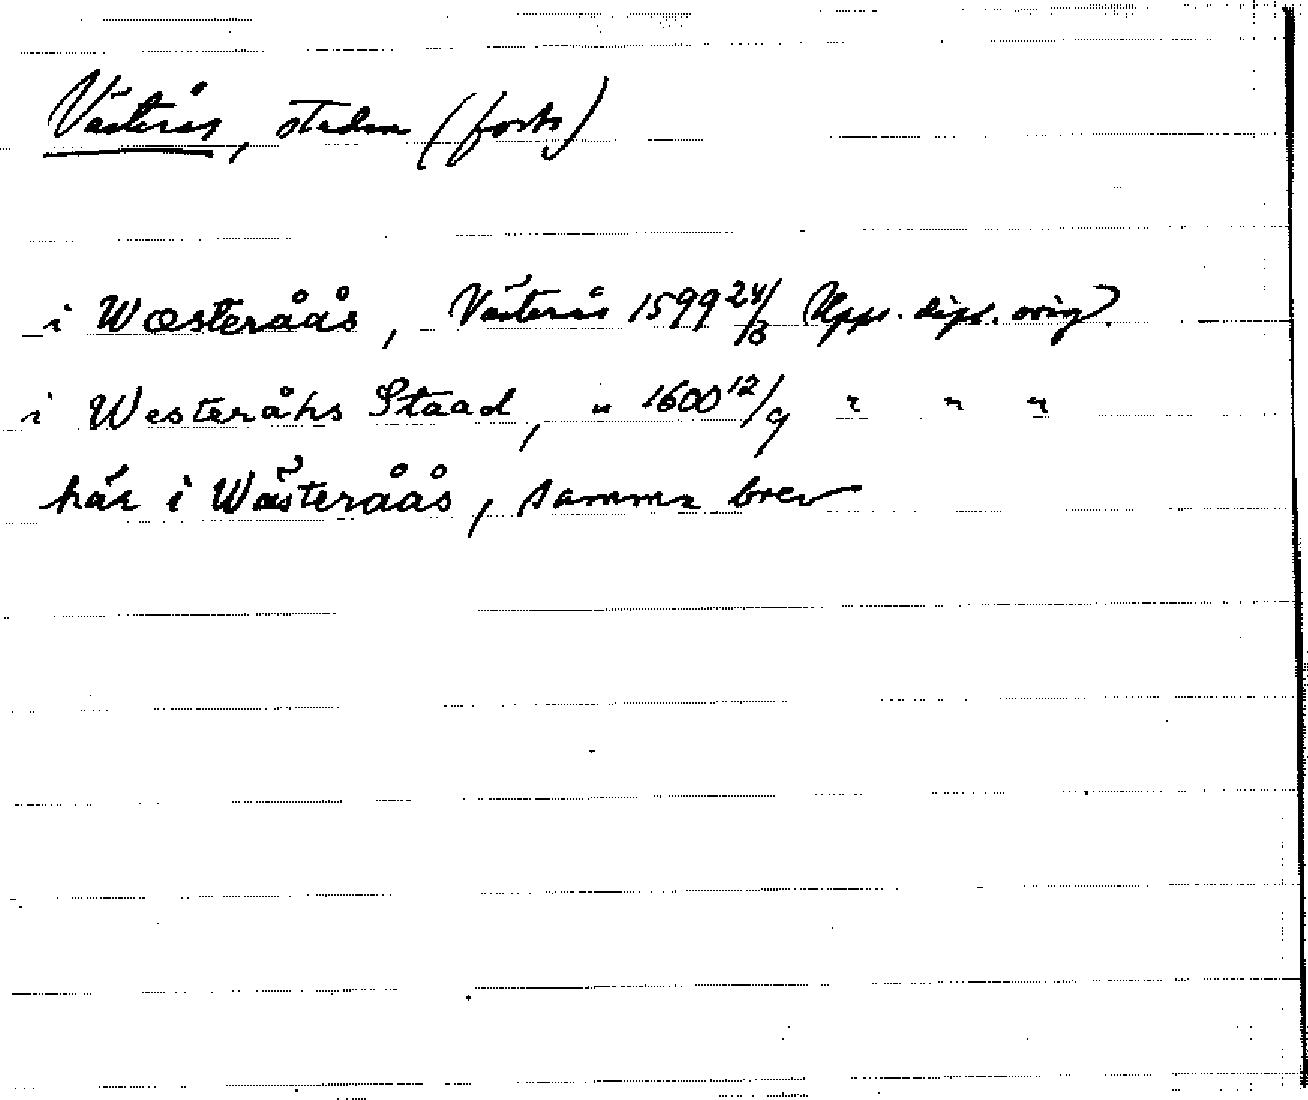 Västerås, staden (forts)
i Wæsteråås, Västerås 1599 24/8 Upps. dipl. orig.
i Westeråhs Staad, " 1600 12/9 " " "
här i Wästeråås, samma brev